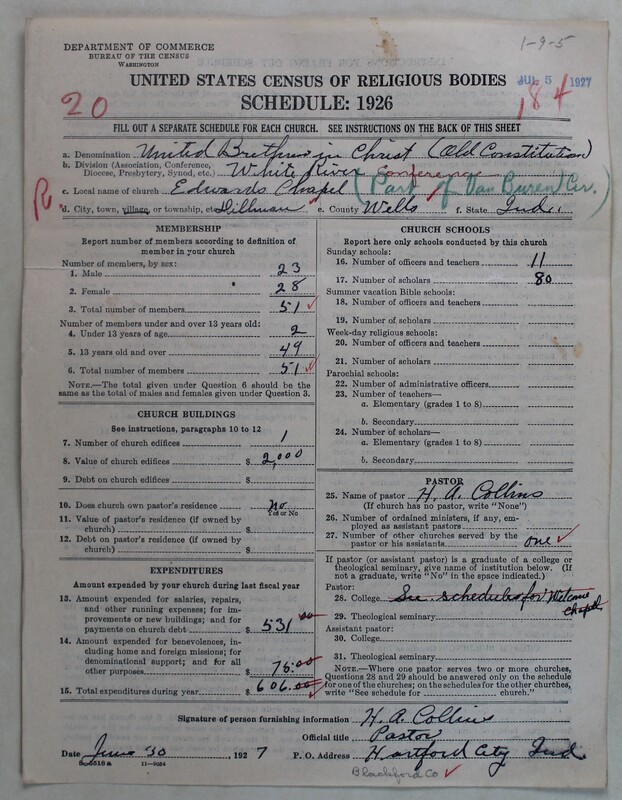 1-9-5
DEPARTMENT OF COMMERCE
BUREAU OF THE CENSUS
WASHINGTON
UNITED STATES CENSUS OF RELIGIOUS BODIES
JUL 5 1927
20
SCHEDULE: 1926
184
FILL OUT A SEPARATE SCHEDULE FOR EACH CHURCH. SEE INSTRUCTIONS ON THE BACK OF THIS SHEET
a. Denomination United Brethren in Christ (Old Constitution)
b. Division (Association, Conference, Diocese, Presbytery, Synod, etc.) White River Conference
c. Local name of church Edwards Chapel (Part of Van Buren Cir.)
R.
d. City, town, village, or township, etc. Dillman e. County Wells f. State Ind.
MEMBERSHIP
Report number of members according to definition of
member in your church
Number of members, by sex:
1. Male 23
2. Female 28
3. Total number of members 51
Number of members under and over 13 years old:
4. Under 13 years of age 2
5. 13 years old and over 49
6. Total number of members 51
NOTE.—The total given under Question 6 should be
same as the total of males and females given under Question 3.
CHURCH BUILDINGS
See instructions, paragraphs 10 to 12
7. Number of church edifices 1
8. Value of church edifices $ 2,000
9. Debt on church edifices $
10. Does church own pastor's residence No
Yes or No
11. Value of pastor's residence (if owned by
church) $
12. Debt on pastor's residence (if owned by
church) $
EXPENDITURES
Amount expended by your church during last fiscal year
13. Amount expended for salaries, repairs,
and other running expenses; for im-
provements or new buildings; and for
payments on church debt $ 531 00
14. Amount expended for benevolences, in-
cluding home and foreign missions; for
denominational support; and for all
other purposes $ 75.00
15. Total expenditures during year $ 606.00
CHURCH SCHOOLS
Report here only schools conducted by this church
Sunday schools:
16. Number of officers and teachers 11
17. Number of scholars 80
Summer vacation Bible schools:
18. Number of officers and teachers
19. Number of scholars
Week-day religious schools:
20. Number of officers and teachers
21. Number of scholars
Parochial schools:
22. Number of administrative officers
23. Number of teachers—
a. Elementary (grades 1 to 8)
b. Secondary
24. Number of scholars—
a. Elementary (grades 1 to 8)
b. Secondary
PASTOR
25. Name of pastor H. A. Collins
(If church has no pastor, write "None")
26. Number of ordained ministers, if any, em-
ployed as assistant pastors
27. Number of other churches served by the
pastor or his assistants one
If pastor (or assistant pastor) is a graduate of a college or
theological seminary, give name of institution below. (If
not a graduate, write "No" in the space indicated.)
Pastor:
28. College See schedules for Welcome
chapel
29. Theological seminary
Assistant pastor:
30. College
31. Theological seminary
NOTE.—Where one pastor serves two or more churches,
Questions 28 and 29 should be answered only on the schedule
for one of the churches; on the schedules for the other churches,
write "See schedule for church."
Signature of person furnishing information H. A. Collins
Official title Pastor
Date June 30 1927 P. O. Address Hartford City Ind
11-9054
Blackford Co